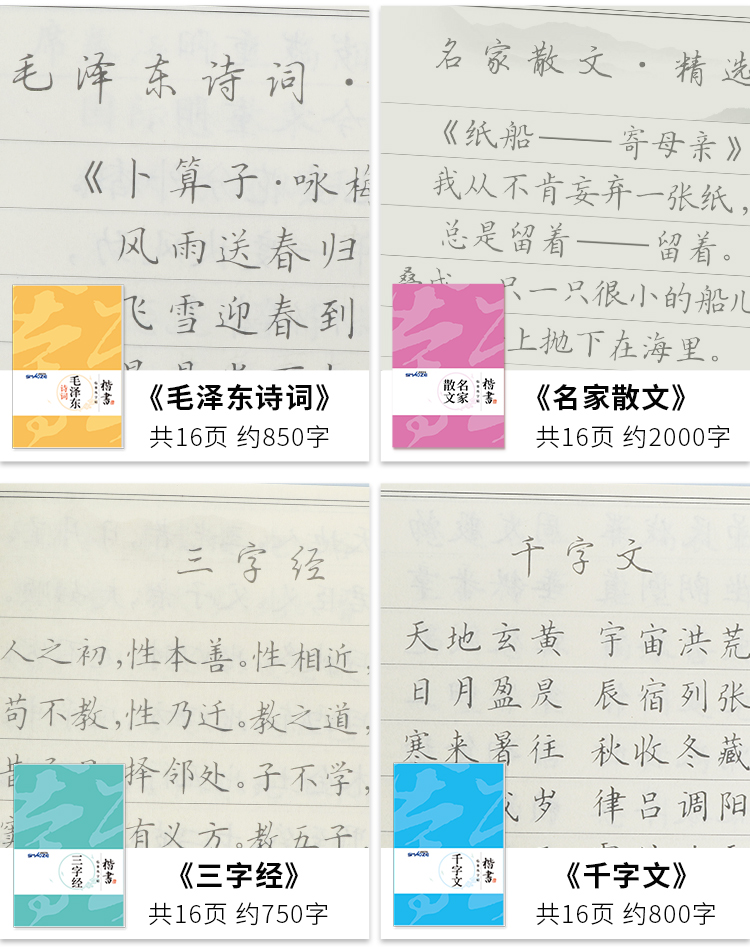 毛泽东诗词·
《卜算子·咏梅
风雨送春归
飞雪迎春到
毛泽东
诗词
楷書
《毛泽东诗词》
共16页 约850字
名家散文·精选
《纸船——寄母亲》
我从不肯妄弃一张纸，
总是留着——留着。
叠成一只一只很小的船儿
上抛下在海里。
名家
散文
楷書
《名家散文》
共16页 约2000字
三字经
人之初，性本善。性相近，
苟不教，性乃迁。教之道，
择邻处。子不学，
有义方。教五子，
三字经
楷書
《三字经》
共16页 约750字
千字文
天地玄黄 宇宙洪荒
日月盈昃 辰宿列张
寒来暑往 秋收冬藏
成岁 律吕调阳
千字文
楷書
《千字文》
共16页 约800字